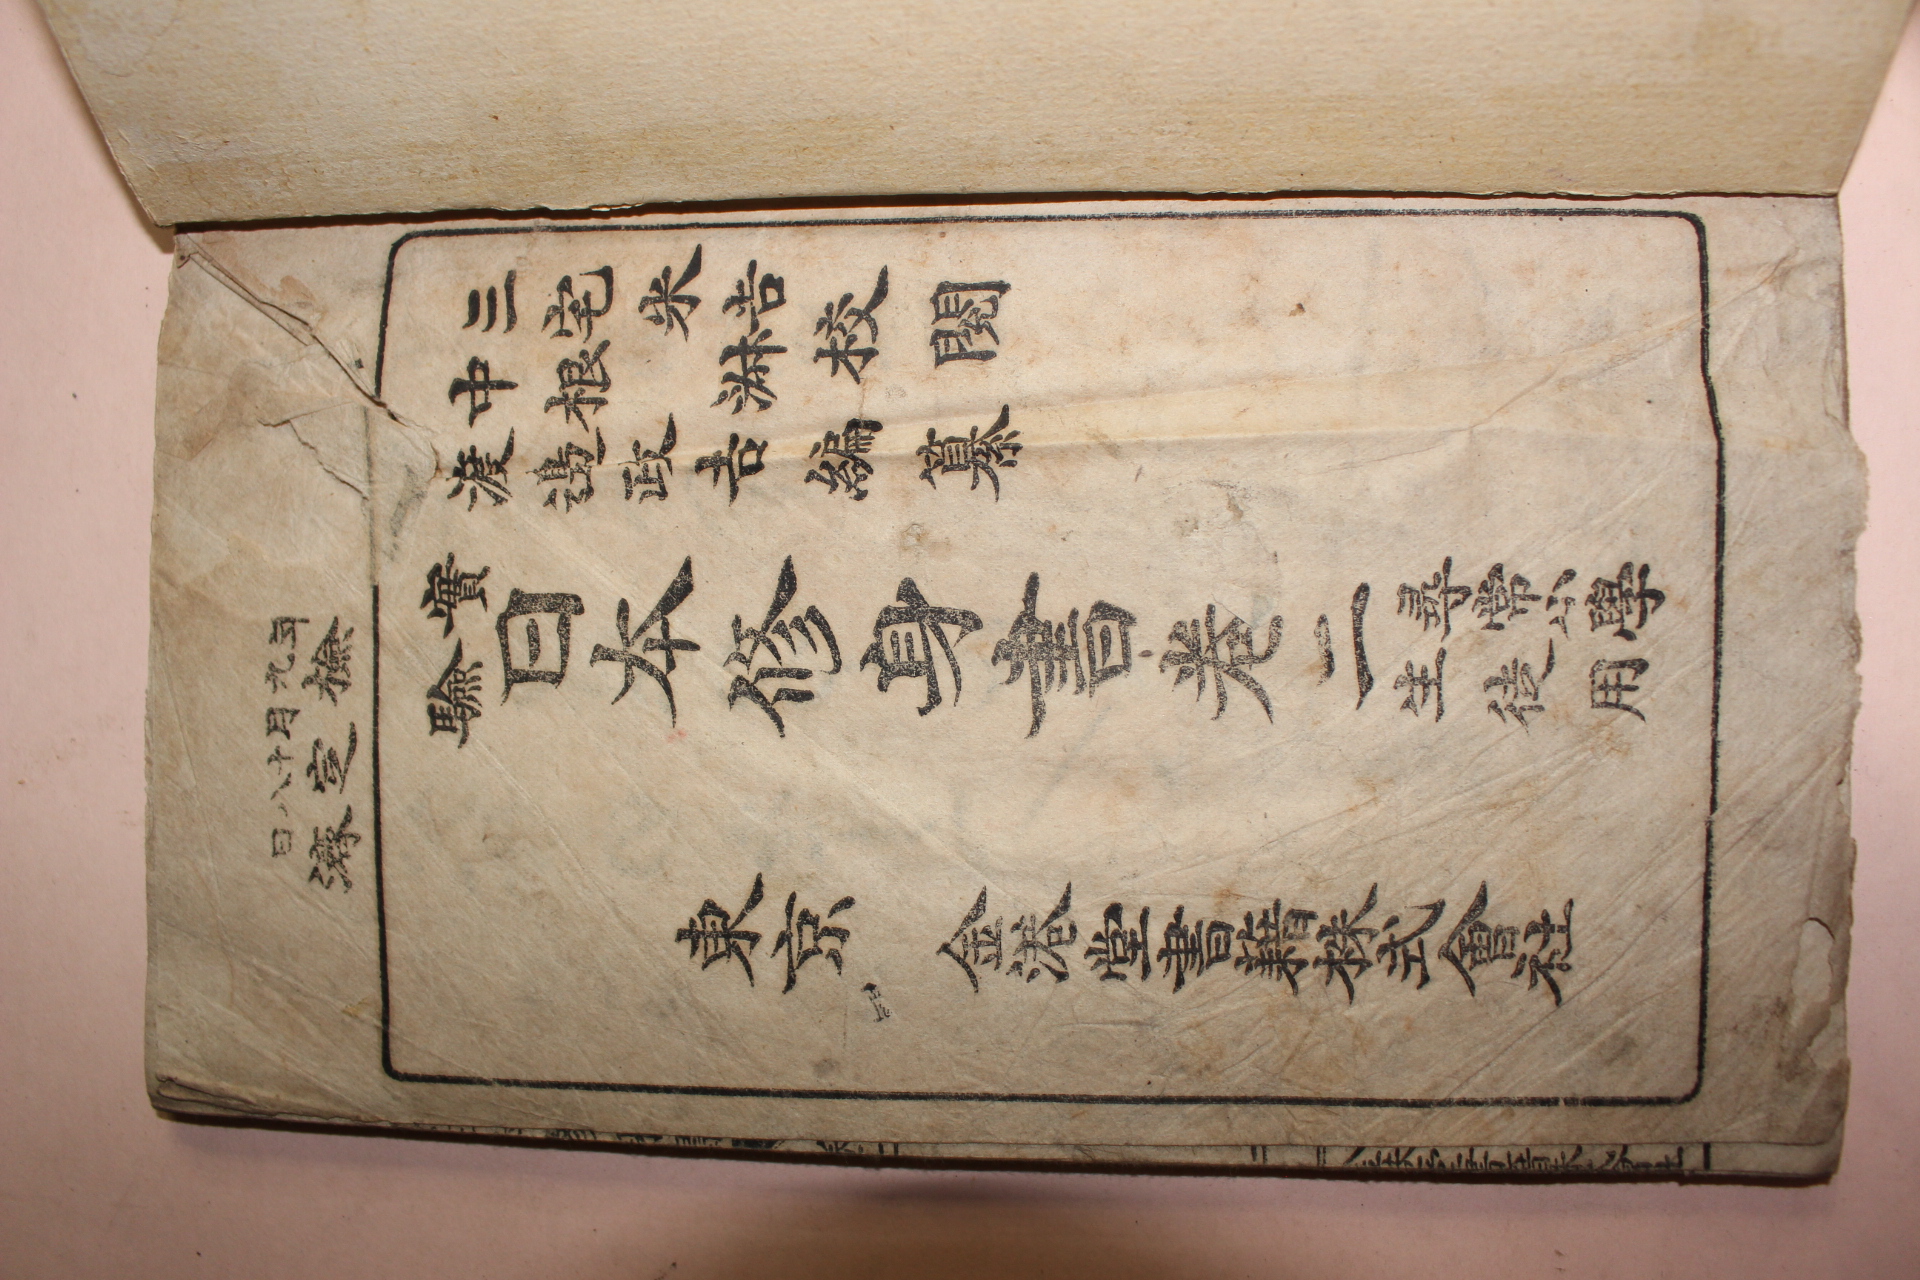 年九月十八日
檢定濟
三宅米吉
中根淑
校閱
渡邊政吉編纂
實驗
日本修身書卷二
尋常小學
生徒用
東京 金港堂書籍株式會社